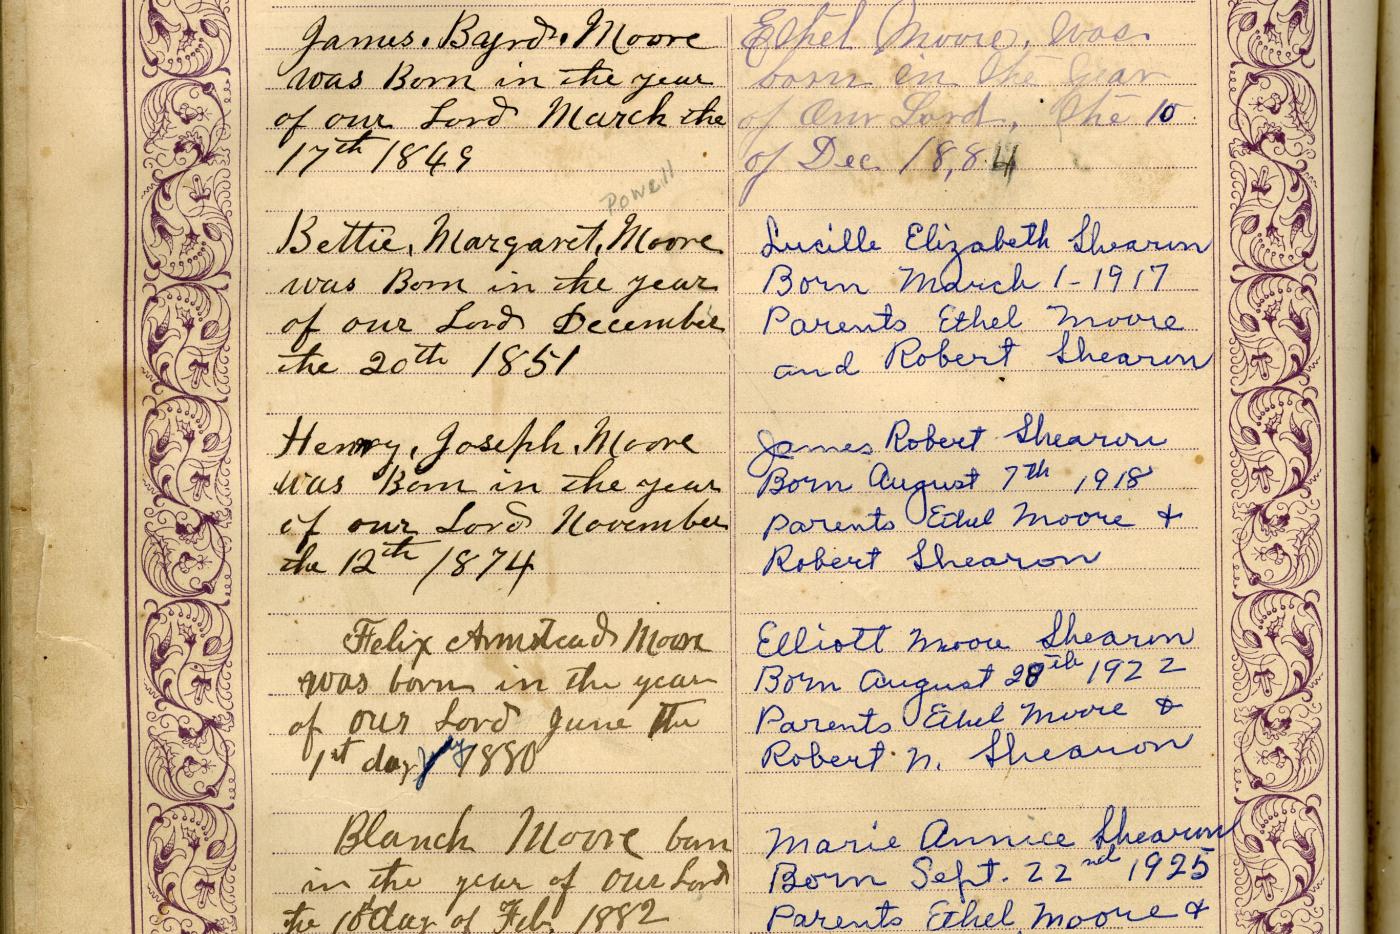 James. Byrd. Moore
was Born in the year
of our Lord March the
17th 1849
Powell
Bettie, Margaret, Moore
was Born in the year
of our Lord December
the 20th 1851
Henry, Joseph, Moore
was Born in the year
of our Lord November
the 12th 1874
Felix Armstead Moore
was born in the year
of our Lord June the
1st day 1880
Blanch Moore born
in the year of our Lord
the day of Feb, 1882
Ethel Moore, was
born in the year
of Our Lord, the 10
of Dec 18,84
Lucille Elizabeth Shearon
Born March 1-1917
Parents Ethel Moore
and Robert Shearon
James Robert Shearon
Born August 7th 1918
Parents Ethel Moore &
Robert Shearon
Elliott Moore Shearon
Born August 28th 1922
Parents Ethel Moore &
Robert N. Shearon
Marie Annice Shearon
Born Sept. 22nd 1925
Parents Ethel Moore &